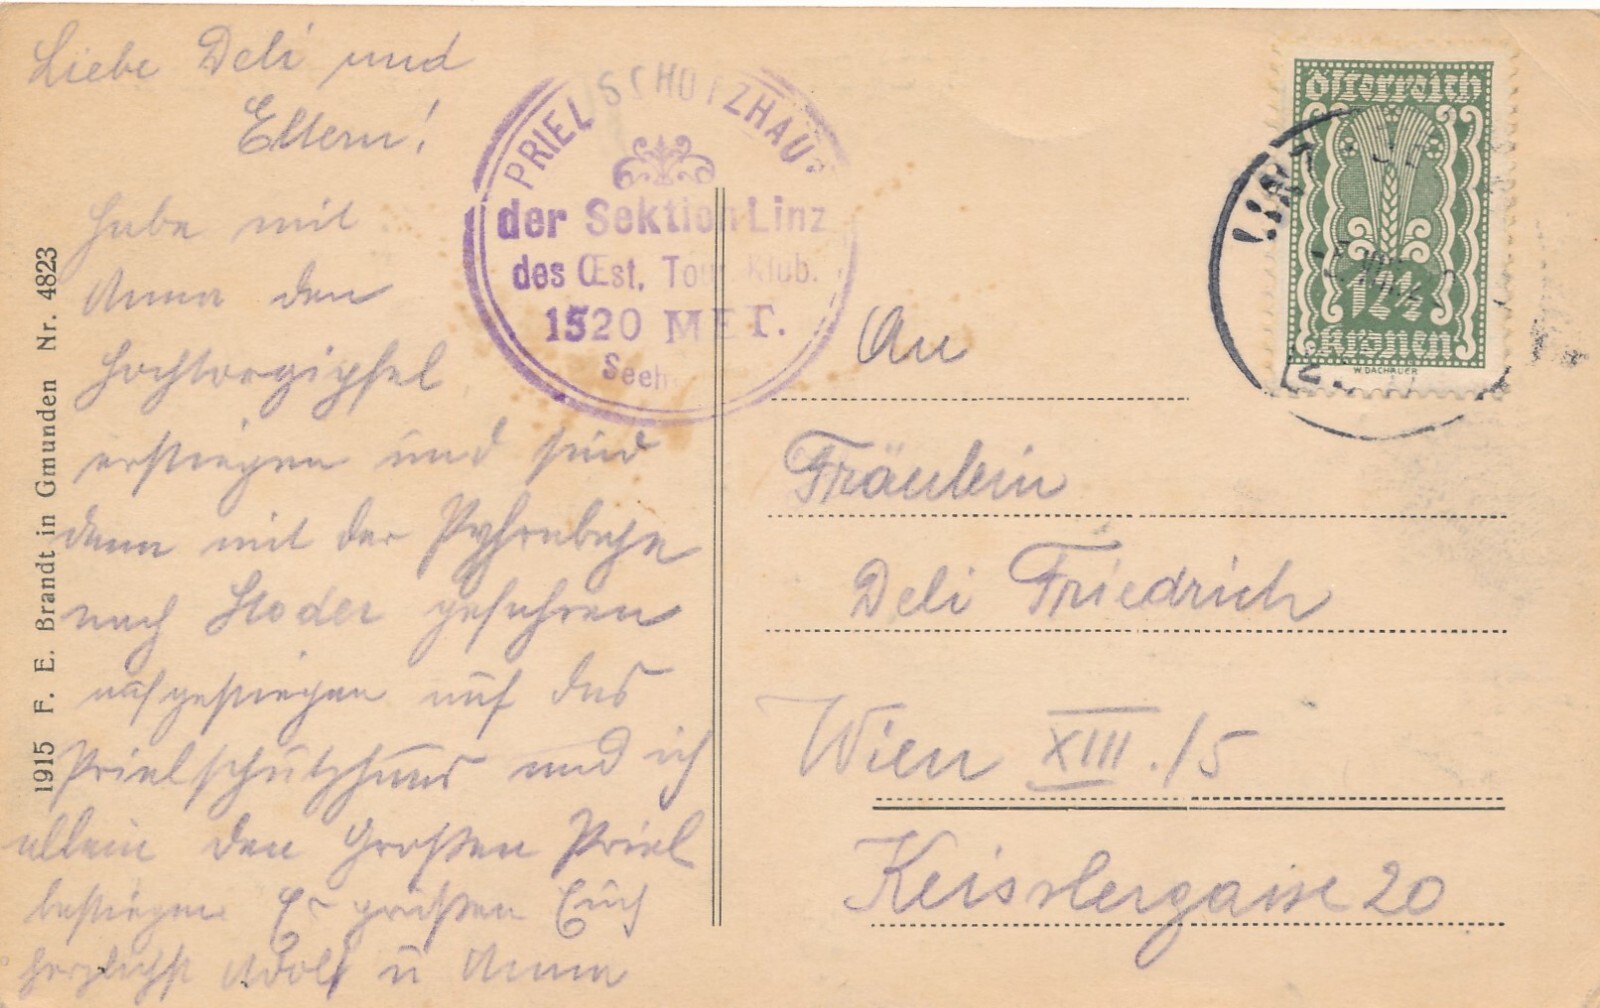 Liebe Deli und
Eltern!
habe mit
Anna den
Hochtorgipfel
erstiegen und sind
dann mit der Pyhrnbahn
nach Stoder gefahren
aufgestiegen auf das
Prielschutzhaus und ich
allein den Großen Priel
bestiegen. Es grüßen Euch
herzlichst Adolf u Anna
1915 F. E. Brandt in Gmunden Nr. 4823
PRIEL SCHUTZHAUS
der Sektion Linz
des Œst. Tour. Klub.
1520 MET.
österreich
12½
kronen
W. DACHAUER
LINZ
An
Fräulein
Deli Friedrich
Wien XIII./5
Keisslergasse 20